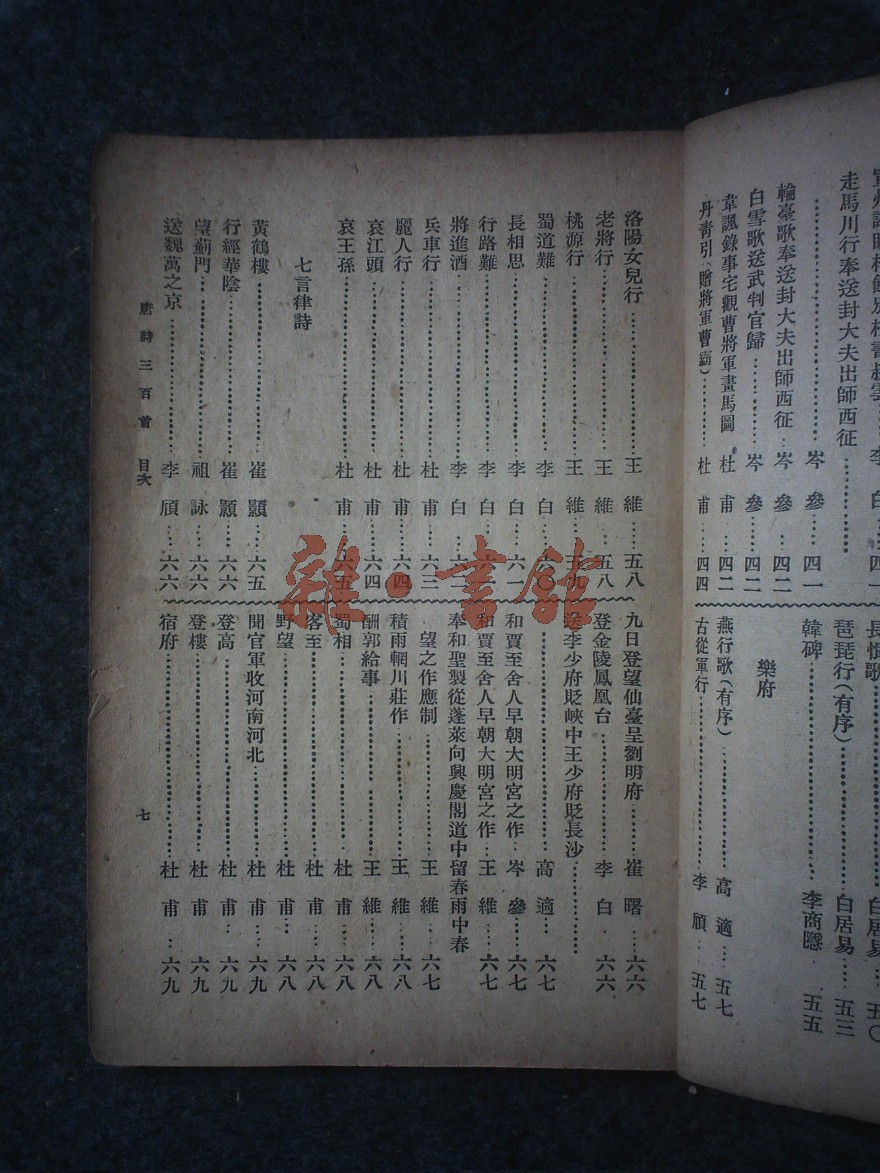 走馬川行奉送封大夫出師西征…………
……………………岑參……四一
輪臺歌奉送封大夫出師西征…岑參……四二
白雪歌送武判官歸……………岑參……四二
韋諷錄事宅觀曹將軍畫馬圖 杜甫……四二
丹靑引(贈將軍曹霸)…………杜甫……四四
長恨歌……………………白居易……五〇
琵琶行(有序)………………白居易……五三
韓碑……………………李商隱……五五
樂府
燕行歌(有序)………………高適……五七
古從軍行……………………李頎……五七
洛陽女兒行……………………王維……五八
老將行……………………王維……五八
桃源行……………………王維……五九
蜀道難……………………李白……六〇
長相思……………………李白……六一
行路難……………………李白……六二
將進酒……………………李白……六二
兵車行……………………杜甫……六三
麗人行……………………杜甫……六四
哀江頭……………………杜甫……六四
哀王孫……………………杜甫……六五
七言律詩
黃鶴樓……………………崔顥……六五
行經華陰……………………崔顥……六六
望薊門……………………祖詠……六六
送魏萬之京……………………李頎……六六
九日登望仙臺呈劉明府……崔曙……六六
登金陵鳳凰台……………………李白…六六
送李少府貶峽中王少府貶長沙…………
……………………高適……六七
和賈至舍人早朝大明宮之作…岑參……六七
和賈至舍人早朝大明宮之作…王維……六七
奉和聖製從蓬萊向興慶閣道中留春雨中春
望之作應制……………………王維……六七
積雨輞川莊作……………………王維……六八
酬郭給事……………………王維……六八
蜀相……………………杜甫……六八
客至……………………杜甫……六八
野望……………………杜甫……六八
聞官軍收河南河北……………杜甫……六九
登高……………………杜甫……六九
登樓……………………杜甫……六九
宿府……………………杜甫……六九
唐詩三百首 目次
七
雜·書館